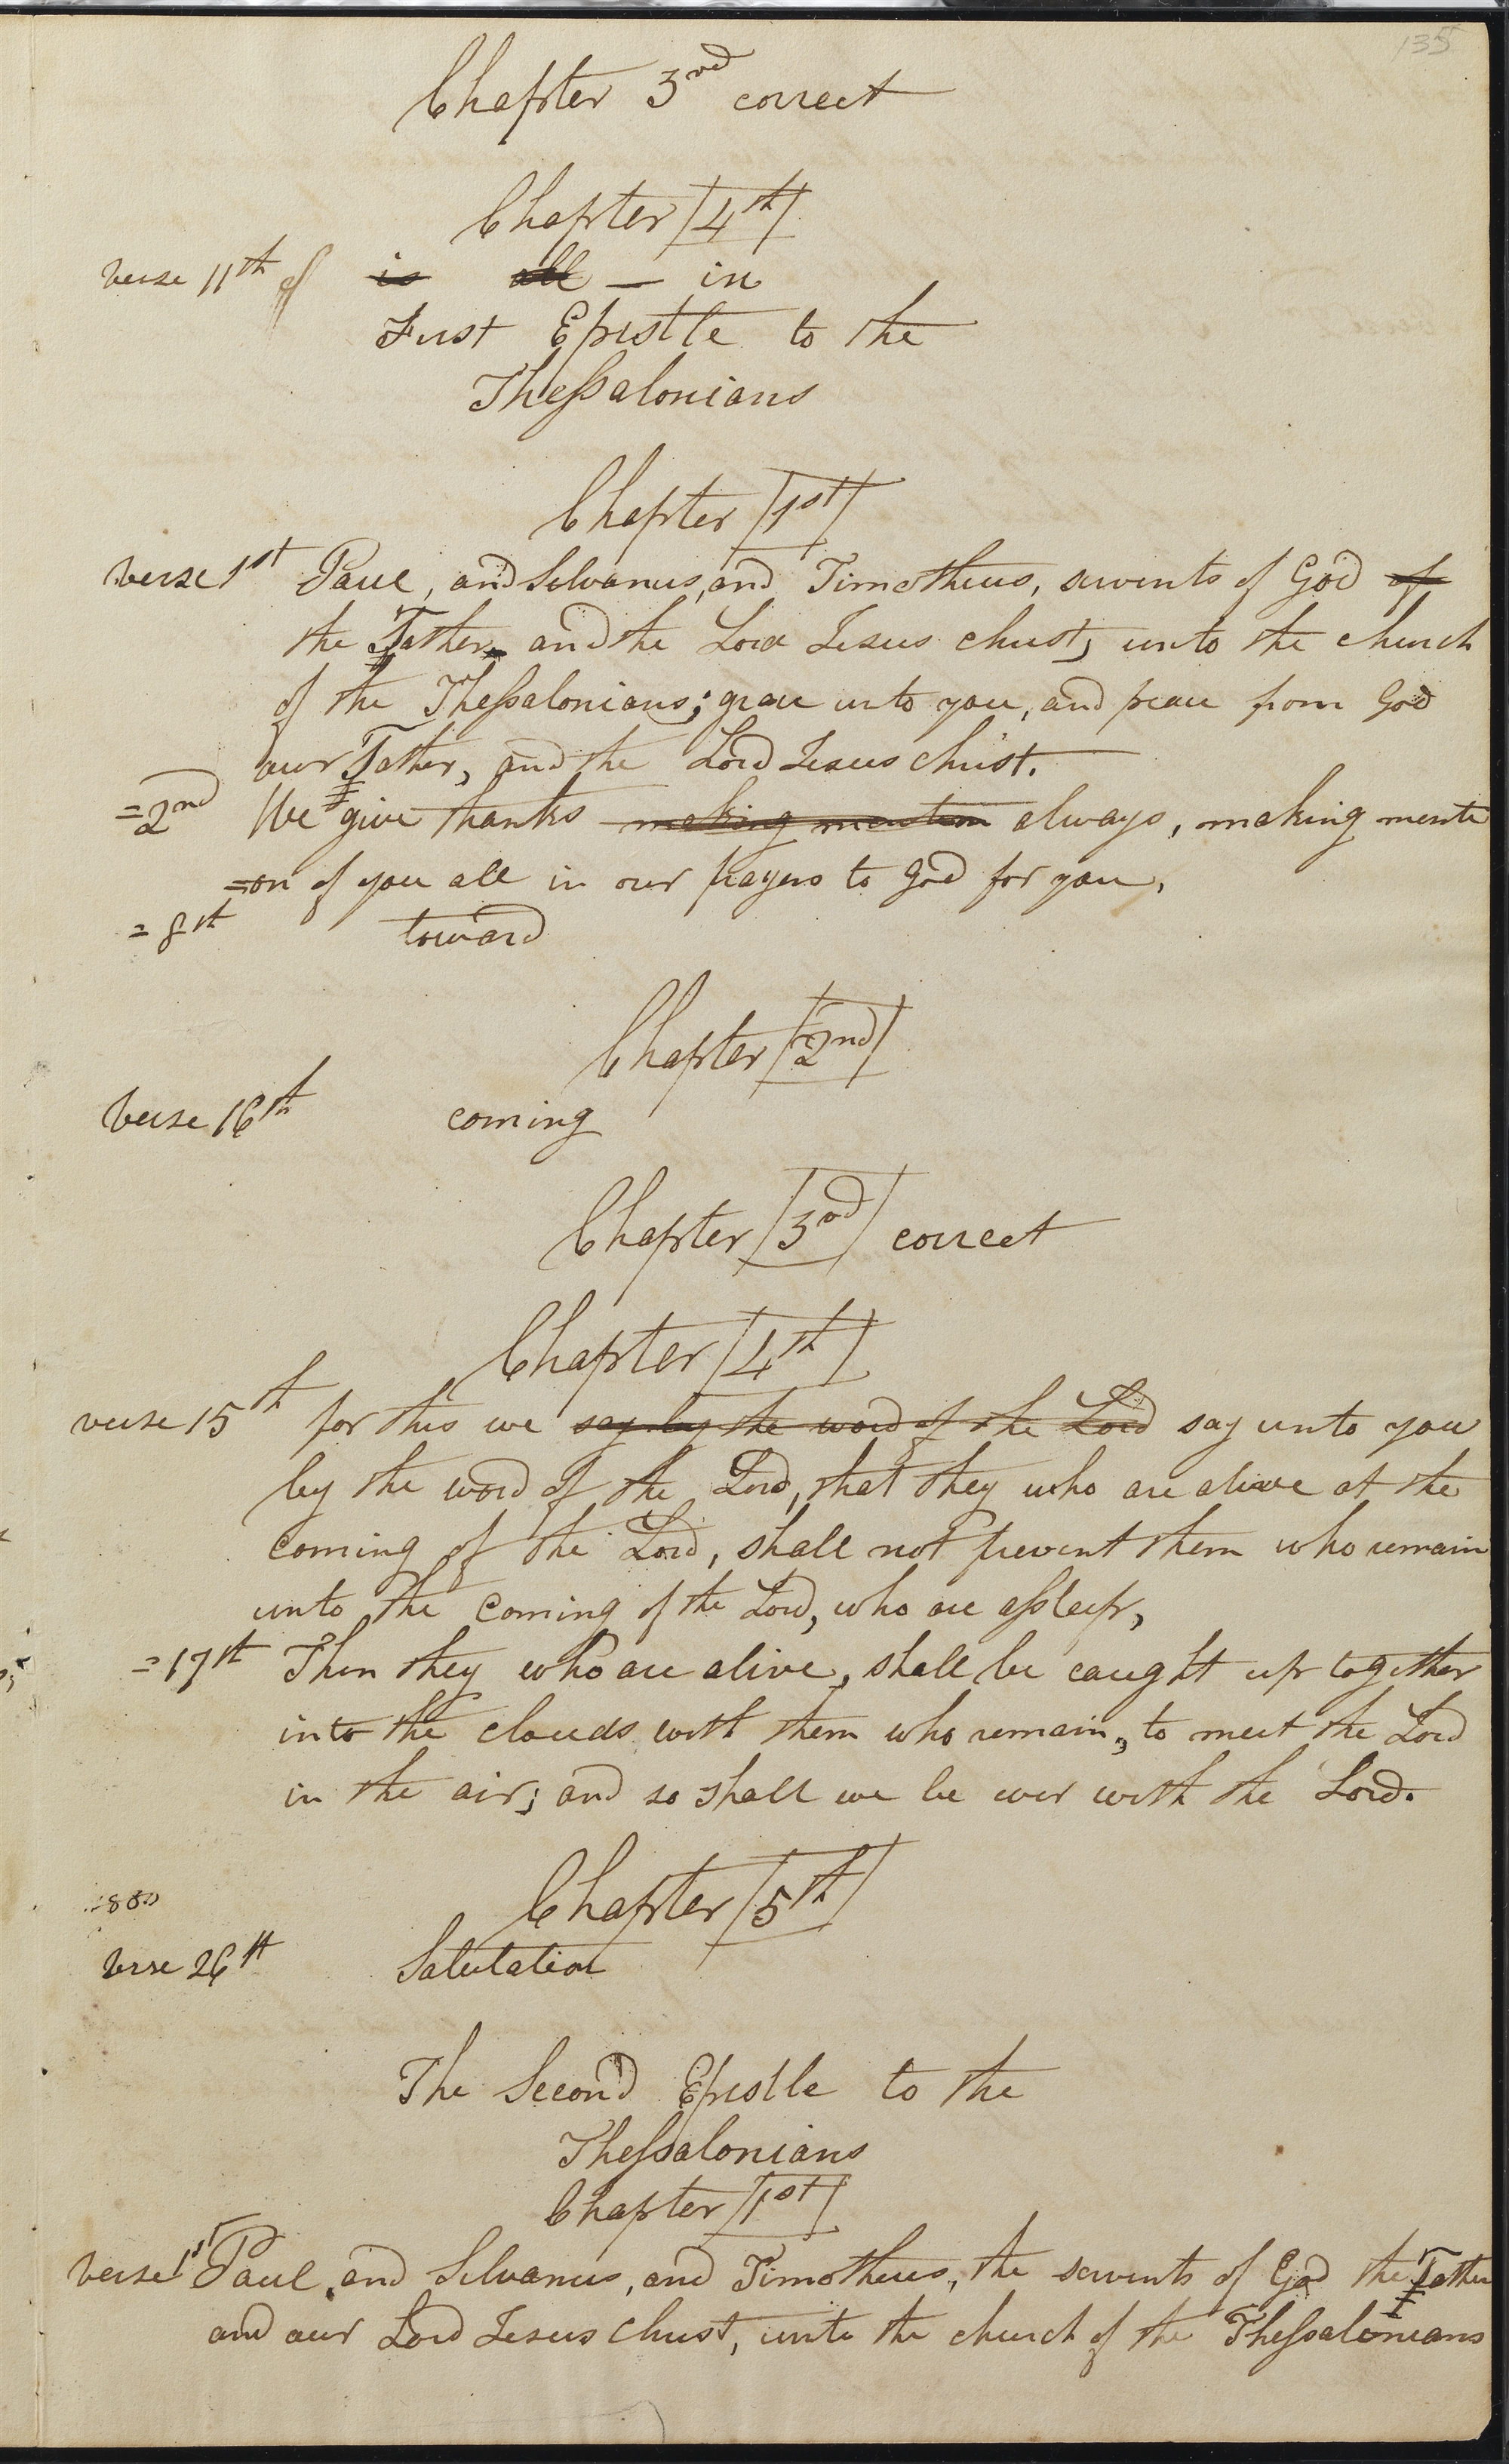 135
Chapter 3rd correct
Chapter 4th
verse 11th is all — in
First Epistle to the
Thessalonians
Chapter 1st
verse 1st Paul, and Silvanus, and Timotheus, servents of God of
the Father and the Lord Jesus christ, unto the church
of the Thessalonians; grace unto you, and peace from God
our Father, and the Lord Jesus christ.
=2nd We give thanks making mention always, making menti
=on of you all in our prayers to God for you,
=8th toward
Chapter 2nd
verse 16th coming
Chapter 3rd correct
Chapter 4th
verse 15th for this we say by the word of the Lord say unto you
by the word of the Lord, that they who are alive at the
coming of the Lord, shall not prevent them who remain
unto the coming of the Lord, who are assleep,
=17th Then they who are alive, shall be caught up together
into the clouds with them who remain, to meet the Lord
in the air; and so shall we be ever with the Lord.
Chapter 5th
verse 26th Salutation
The Second Epistle to the
Thessalonians
Chapter 1st
verse 1st Paul, and Silvanus, and Timotheus, the servents of God the Father
and our Lord Jesus christ, unto the church of the Thessalonians